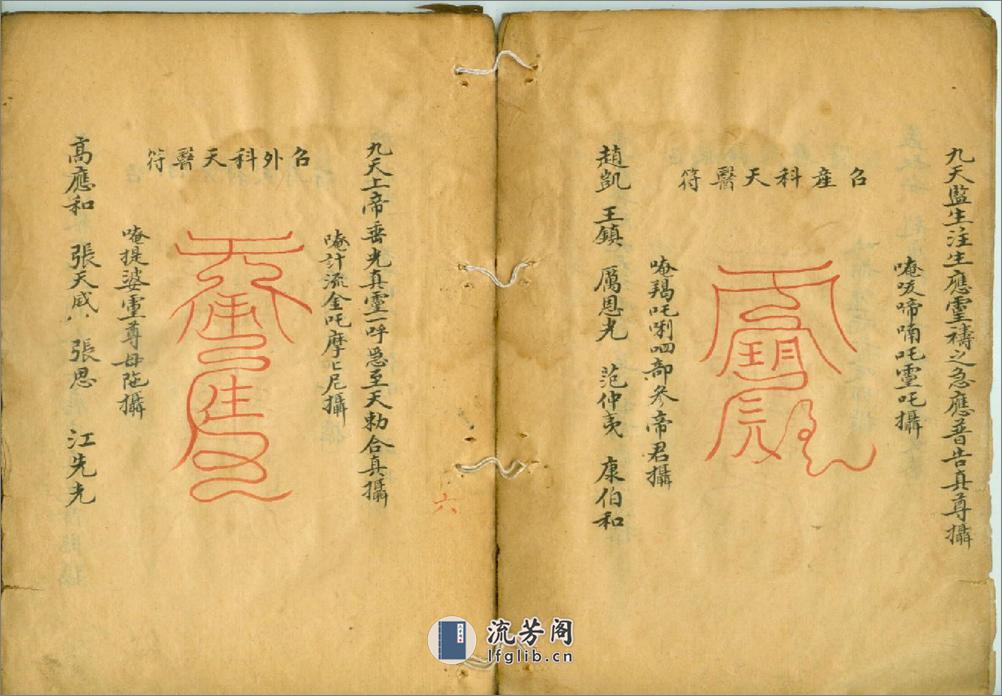 九天監生注生應靈禱之急應普告真尊攝
唵喥啼喃吒靈吒攝
召產科天醫符
唵羯吒唎四部參帝君攝
趙凱 王鎮 厲恩光 范仲夷 康伯和
九天上帝垂光真靈一呼急至天勅合真攝
唵計流金吒摩匕尼攝
召外科天醫符
唵提婆重尊母陁攝
高應和 張天威 張思 江先光
六
流芳阁
lfglib.cn